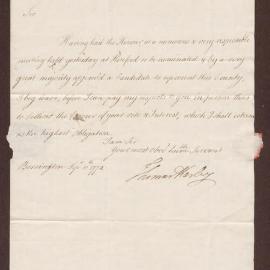 Sir
Having had the Honour at a numerous & very respectable
meeting held yesterday at Hereford to be nominated & by a very
great majority approv'd a Candidate to represent this County,
I beg leave, before I can pay my respects to you in person thus
to sollicit the Honor of your vote & Interest, which I shall esteem
as the highest Obligation
I am Sir
Your most obed.t humble Servant
Berrington Sep.
Thomas Harley